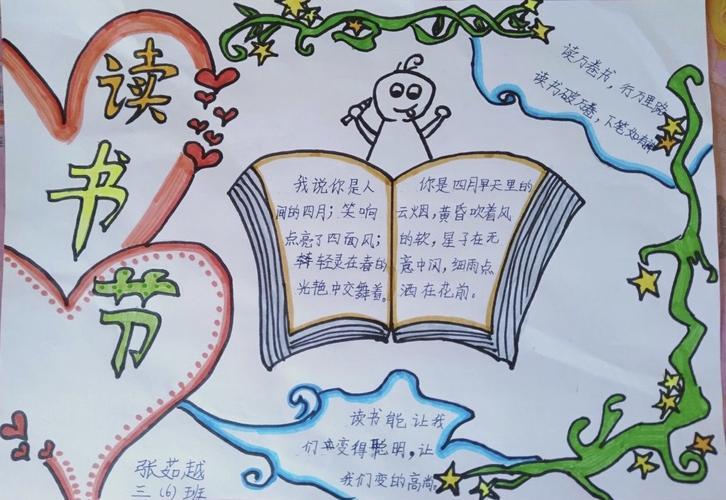 读书节
读万卷书，行万里路
读书破万卷，下笔如有神
我说你是人
间的四月；笑响
点亮了四面风；
轻灵在春的
光艳中交舞着。
你是四月早天里的
云烟，黄昏吹着风
的软，星子在无
意中风，细雨点
洒在花前。
读书能让我
们变得聪明，让
我们变的高尚
张茹越
三（6）班